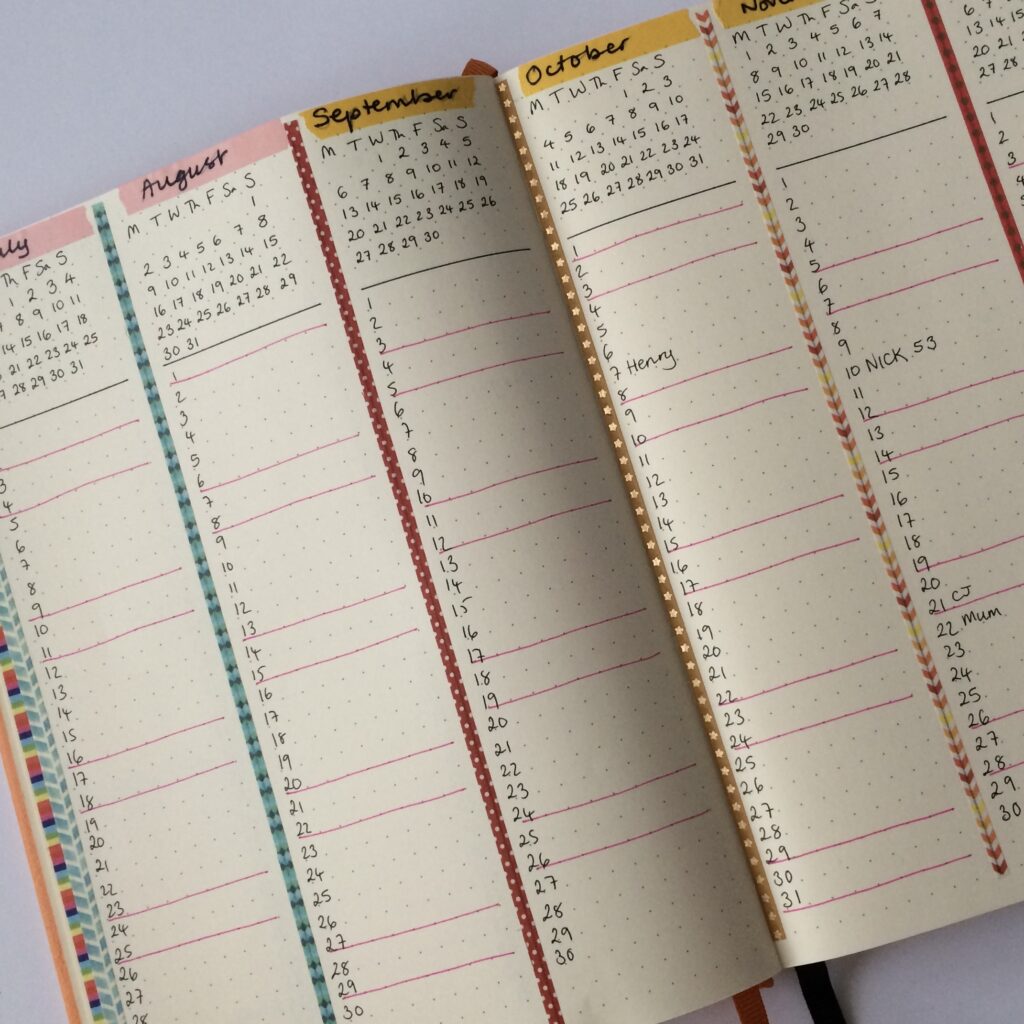 uly
Th F Sa S
1 2 3 4
7 8 9 10 11
14 15 16 17 18
22 23 24 25
28 29 30 31
3
4
5
6
7
8
9
10
11
12
13
14
15
16
17
18
19
20
21
22
23
24
25
26
27
28
August
M T W Th F Sa S
1
2 3 4 5 6 7 8
9 10 11 12 13 14 15
16 17 18 19 20 21 22
23 24 25 26 27 28 29
30 31
1
2
3
4
5
6
7
8
9
10
11
12
13
14
15
16
17
18
19
20
21
22
23
24
25
26
27
28
29
30
September
M T W Th F Sa S
1 2 3 4 5
6 7 8 9 10 11 12
13 14 15 16 17 18 19
20 21 22 23 24 25 26
27 28 29 30
1
2
3
4
5
6
7
8
9
10
11
12
13
14
15
16
17
18
19
20
21
22
23
24
25
26
27
28
29
30
October
M T W Th F Sa S
1 2 3
4 5 6 7 8 9 10
11 12 13 14 15 16 17
18 19 20 21 22 23 24
25 26 27 28 29 30 31
1
2
3
4
5
6
7 Henry
8
9
10
11
12
13
14
15
16
17
18
19
20
21
22
23
24
25
26
27
28
29
30
31
Nov
M T W Th F Sa S
1 2 3 4 5 6 7
8 9 10 11 12 13 14
15 16 17 18 19 20 21
22 23 24 25 26 27 28
29 30
1
2
3
4
5
6
7
8
9
10 NICK 53
11
12
13
14
15
16
17
18
19
20
21 CJ
22 mum
23
24
25
26
27
28
29
30
6 7
13 14 15
20 21
27 28
1
2
3
4